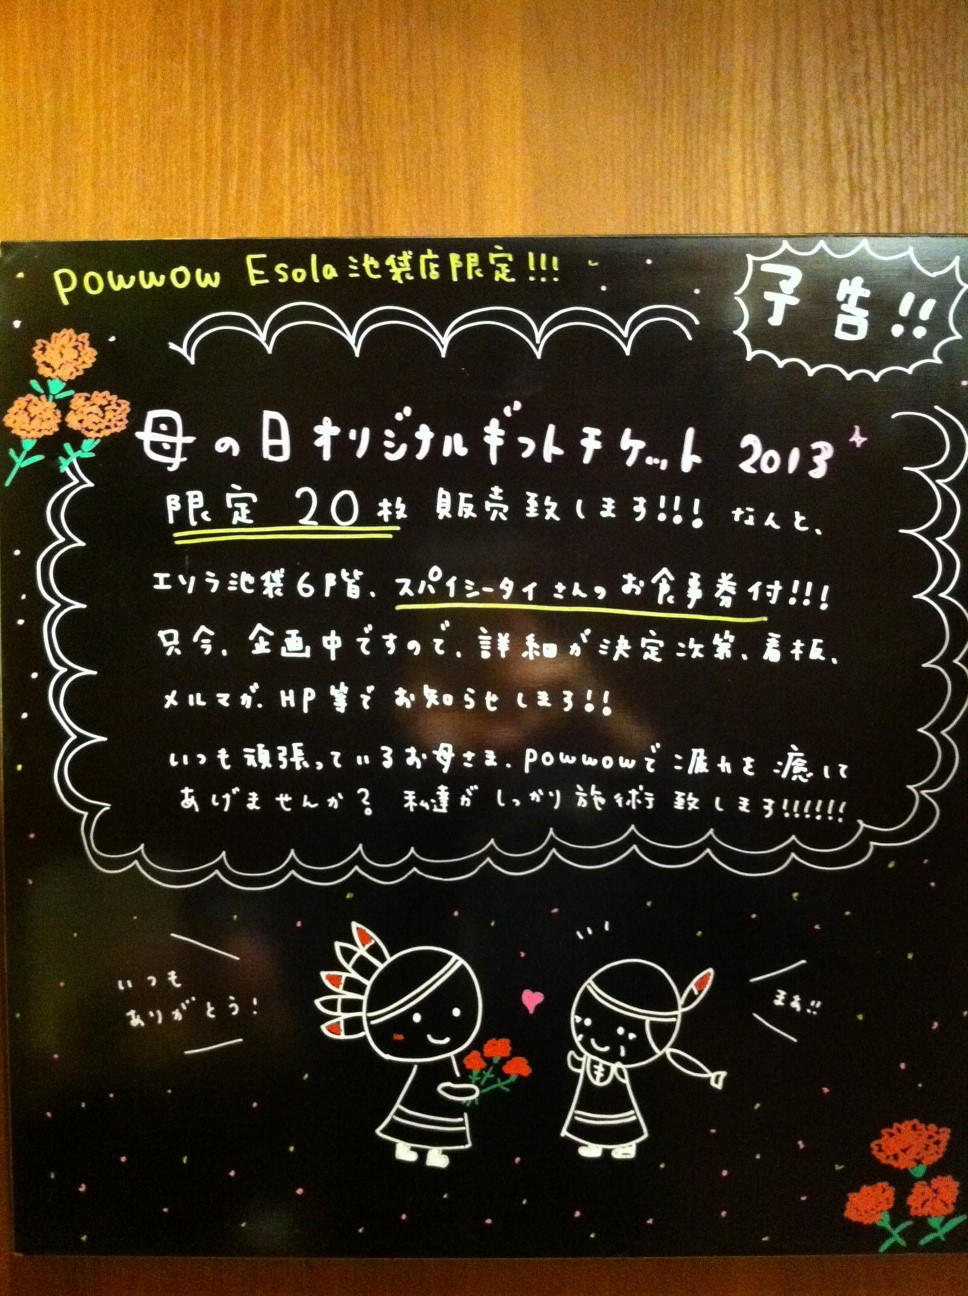 powwow Esola池袋店限定!!!
予告!!
母の日オリジナルギフトチケット 2013
限定 20枚 販売致します!!! なんと、
エソラ池袋6階、スパイシータイさんのお食事券付!!!
只今、企画中ですので、詳細が決定次第、看板、
メルマガ、HP等でお知らせします!!
いつも頑張っているお母さま、powwowで疲れを癒して
あげませんか? 私達がしっかり施術致します!!!!!!
いつも
ありがとう!
まぁ!!